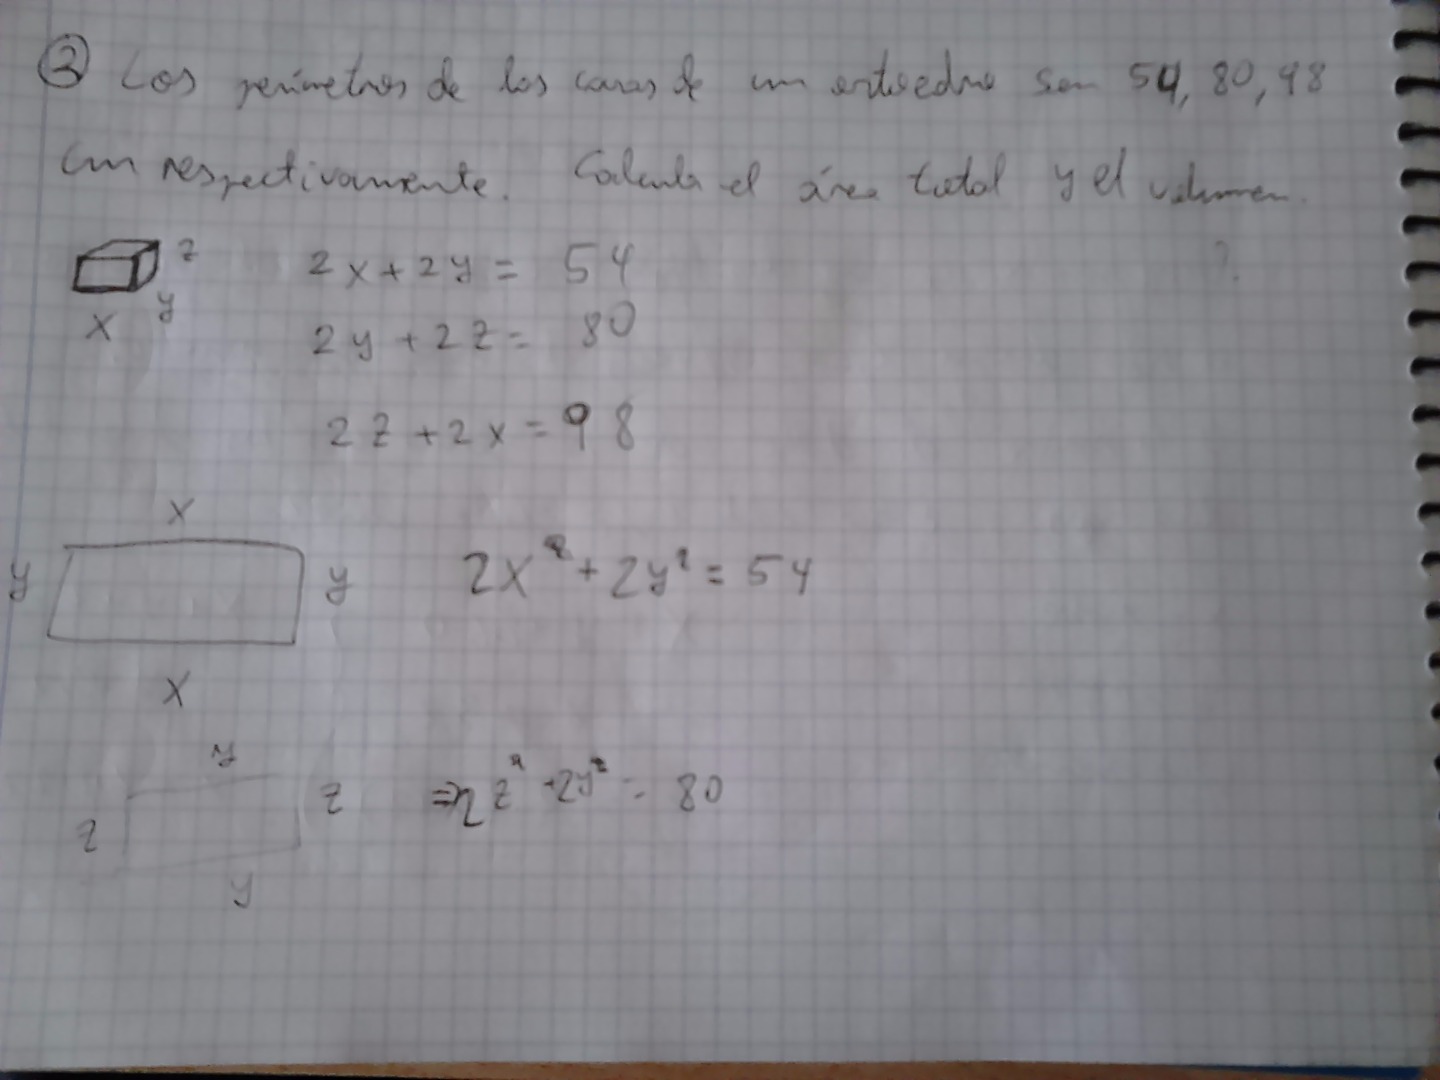 3 Los perímetros de las caras de un ortoedro son 54, 80, 98
cm respectivamente. Calcula el área total y el volumen.
?
z
x
y
2x + 2y = 54
2y + 2z = 80
2z + 2x = 98
x
y
y
2x² + 2y² = 54
x
y
z
z
⇒ 2z² + 2y² = 80
y